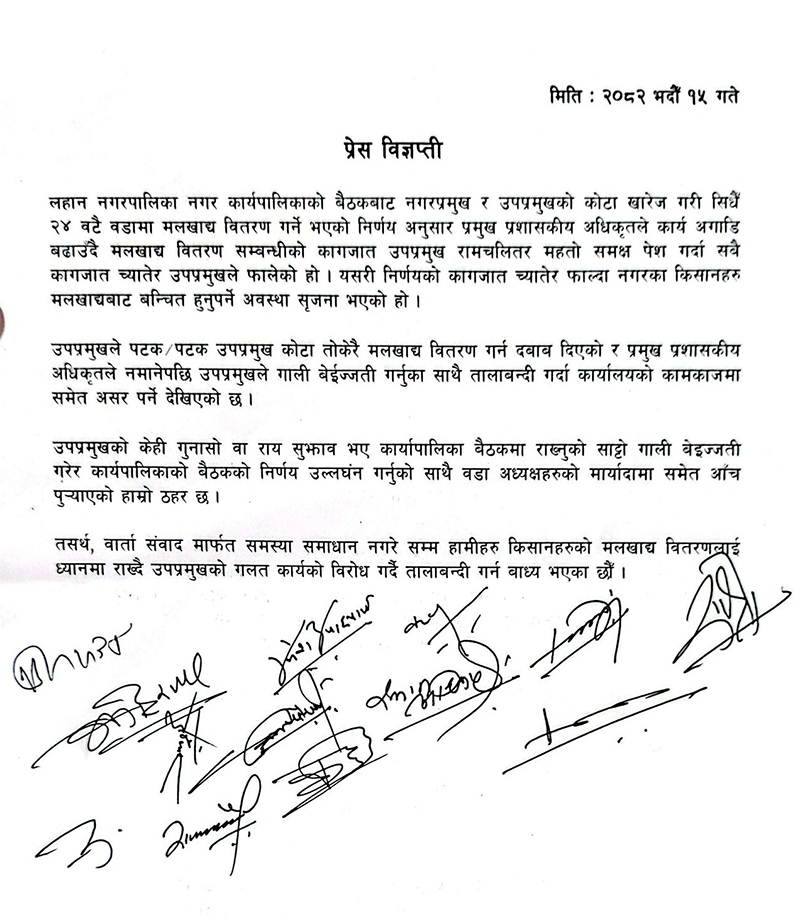 मिति : २०८२ भदौँ १५ गते
प्रेस विज्ञप्ती
लहान नगरपालिका नगर कार्यपालिकाको बैठकबाट नगरप्रमुख र उपप्रमुखको कोटा खारेज गरी सिधैँ
२४ वटै वडामा मलखाद्य वितरण गर्ने भएको निर्णय अनुसार प्रमुख प्रशासकीय अधिकृतले कार्य अगाडि
बढाउँदै मलखाद्य वितरण सम्बन्धीको कागजात उपप्रमुख रामचलितर महतो समक्ष पेश गर्दा सबै
कागजात च्यातेर उपप्रमुखले फालेको हो । यसरी निर्णयको कागजात च्यातेर फाल्दा नगरका किसानहरु
मलखाद्यबाट बन्चित हुनुपर्ने अवस्था सृजना भएको हो ।
उपप्रमुखले पटक/पटक उपप्रमुख कोटा तोकेरै मलखाद्य वितरण गर्न दबाब दिएको र प्रमुख प्रशासकीय
अधिकृतले नमानेपछि उपप्रमुखले गाली बेईज्जती गर्नुका साथै तालाबन्दी गर्दा कार्यालयको कामकाजमा
समेत असर पर्ने देखिएको छ ।
उपप्रमुखको केही गुनासो वा राय सुझाव भए कार्यापालिका बैठकमा राख्नुको साट्टो गाली बेइज्जती
गरेर कार्यपालिकाको बैठकको निर्णय उल्लघंन गर्नुको साथै वडा अध्यक्षहरुको मार्यादामा समेत आँच
पुऱ्याएको हाम्रो ठहर छ ।
तसर्थ, वार्ता संवाद मार्फत समस्या समाधान नगरे सम्म हामीहरु किसानहरुको मलखाद्य वितरणलाई
ध्यानमा राख्दै उपप्रमुखको गलत कार्यको विरोध गर्दै तालाबन्दी गर्न बाध्य भएका छौँ ।